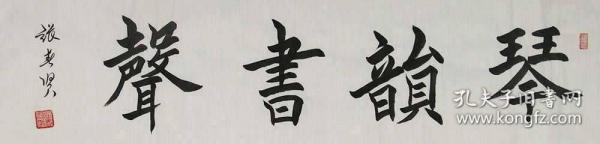 琴韻書聲
張春賢
孔夫子旧书网
www.kongfz.com